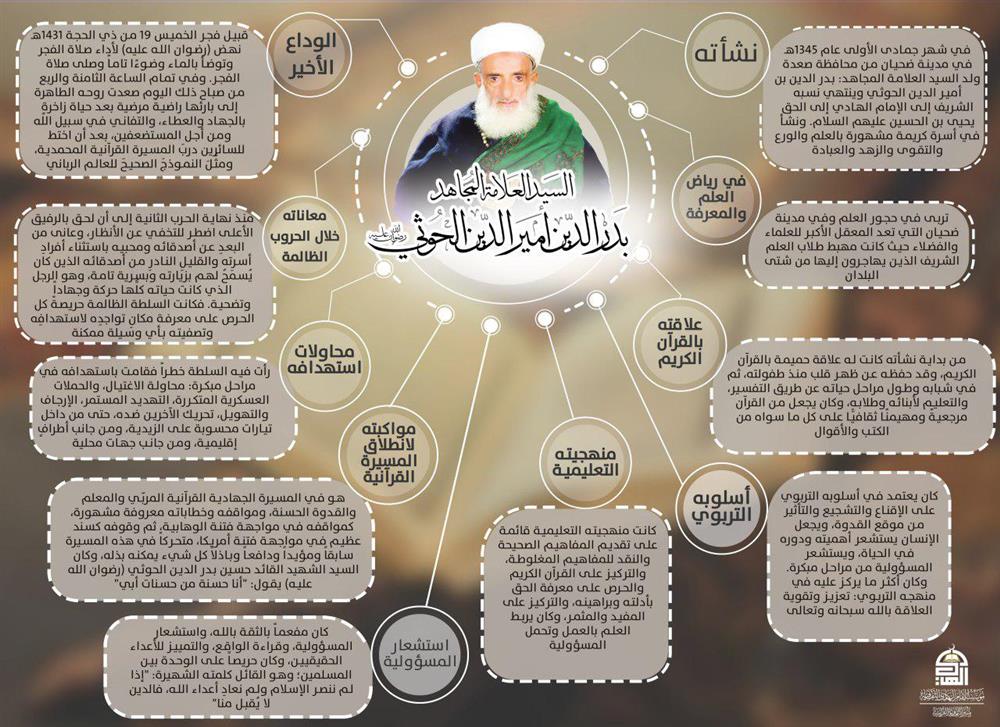 السيد العلامة المجاهد
بدر الدين أمير الدين الحوثي رضوان الله عليه
نشأته
في شهر جمادى الأولى عام 1345هـ
في مدينة ضحيان من محافظة صعدة
ولد السيد العلامة المجاهد: بدر الدين بن
أمير الدين الحوثي وينتهي نسبه
الشريف إلى الإمام الهادي إلى الحق
يحيى بن الحسين عليهم السلام. ونشأ
في أسرة كريمة مشهورة بالعلم والورع
والتقوى والزهد والعبادة
في رياض
العلم
والمعرفة
تربى في حجور العلم وفي مدينة
ضحيان التي تعد المعقل الأكبر للعلماء
والفضلاء حيث كانت مهبط طلاب العلم
الشريف الذين يهاجرون إليها من شتى
البلدان
علاقته
بالقرآن
الكريم
من بداية نشأته كانت له علاقة حميمة بالقرآن
الكريم، وقد حفظه عن ظهر قلب منذ طفولته، ثم
في شبابه وطول مراحل حياته عن طريق التفسير،
والتعليم لأبنائه وطلابه، وكان يجعل من القرآن
مرجعية ومهيمنًا ثقافيًا على كل ما سواه من
الكتب والأقوال
أسلوبه
التربوي
كان يعتمد في أسلوبه التربوي
على الإقناع والتشجيع والتأثير
من موقع القدوة، ويجعل
الإنسان يستشعر أهميته ودوره
في الحياة، ويستشعر
المسؤولية من مراحل مبكرة.
وكان أكثر ما يركز عليه في
منهجه التربوي: تعزيز وتقوية
العلاقة بالله سبحانه وتعالى
منهجيته
التعليمية
كانت منهجيته التعليمية قائمة
على تقديم المفاهيم الصحيحة
والنقد للمفاهيم المغلوطة،
والتركيز على القرآن الكريم
والحرص على معرفة الحق
بأدلته وبراهينه، والتركيز على
المفيد والمثمر، وكان يربط
العلم بالعمل وتحمل
المسؤولية
استشعار
المسؤولية
كان مفعماً بالثقة بالله، واستشعار
المسؤولية، وقراءة الواقع، والتمييز للأعداء
الحقيقيين، وكان حريصاً على الوحدة بين
المسلمين؛ وهو القائل كلمته الشهيرة: "إذا
لم ننصر الإسلام ولم نعادِ أعداء الله، فالدين
لا يُقبل منا"
مواكبته
لانطلاق
المسيرة
القرآنية
هو في المسيرة الجهادية القرآنية المربّي والمعلم
والقدوة الحسنة، ومواقفه وخطاباته معروفة مشهورة،
كمواقفه في مواجهة فتنة الوهابية، ثم وقوفه كسند
عظيم في مواجهة فتنة أمريكا، متحركاً في هذه المسيرة
سابقاً ومؤيداً ودافعاً وباذلاً كل شيء يمكنه بذله، وكان
السيد الشهيد القائد حسين بدر الدين الحوثي (رضوان الله
عليه) يقول: "أنا حسنة من حسنات أبي"
محاولات
استهدافه
رأت فيه السلطة خطراً فقامت باستهدافه في
مراحل مبكرة: محاولة الاغتيال، والحملات
العسكرية المتكررة، التهديد المستمر، الإرجاف
والتهويل، تحريك الآخرين ضده، حتى من داخل
تيارات محسوبة على الزيدية، ومن جانب أطراف
إقليمية، ومن جانب جهات محلية
معاناته
خلال الحروب
الظالمة
منذ نهاية الحرب الثانية إلى أن لحق بالرفيق
الأعلى اضطر للتخفي عن الأنظار، وعانى من
البعدِ عن أصدقائه ومحبيه باستثناء أفرادِ
أسرته والقليل النادر من أصدقائه الذين كان
يُسمَحُ لهم بزيارته وبسرية تامة، وهو الرجل
الذي كانت حياته كلها حركة وجهاداً
وتضحية. فكانت السلطة الظالمة حريصةً كل
الحرص على معرفة مكان تواجدِه لاستهدافِه
وتصفيته بأي وسيلة ممكنة
الوداع
الأخير
قبيل فجر الخميس 19 من ذي الحجة 1431هـ
نهض (رضوان الله عليه) لأداء صلاة الفجر
وتوضأ بالماء وضوءًا تاماً وصلى صلاة
الفجر. وفي تمام الساعة الثامنة والربع
من صباح ذلك اليوم صعدت روحه الطاهرة
إلى بارئها راضية مرضية بعد حياة زاخرةٍ
بالجهاد والعطاء، والتفاني في سبيل الله
ومن أجل المستضعفين، بعد أن اختط
للسائرين دربَ المسيرة القرآنية المحمدية،
ومثلَ النموذجَ الصحيحَ للعالم الرباني